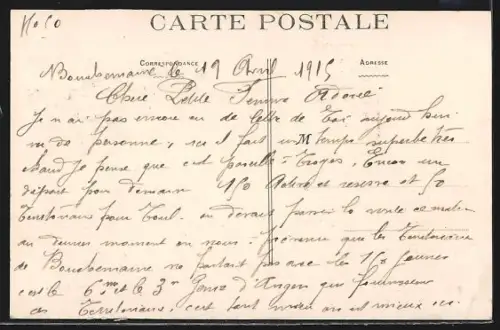 CARTE POSTALE
CORRESPONDANCE
ADRESSE
le 19 Avril 1915
Chère Petite Femme Adorée
Je n'ai pas encore eu de lettre de Toi aujourd'hui
ni de personne, ici il fait un temps superbe très
chaud Je pense que c'est pareil à Troyes, Encore un
départ pour demain 150 Active et reserve et 50
Territoriaux pour Toul. on devait passer la
au dernier moment on nous que les Territoriaux
de ne partait pas avec les 150 jeunes
c'est le 6me et le 3e d'Angers qui fournissent
des Territoriaux, c'est tant mieux on est mieux ici